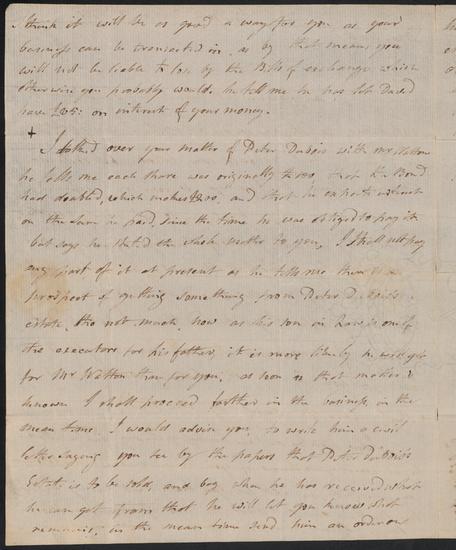 I think it will be as good a way for you as your
business can be transacted in, as by that means you
will not be liable to loss by the Bills of exchange which
otherwise you probably would. he tell me he has let David
have on interest of your money.
+
I talked over your matter of Peter Dubois with Mr Watton
he tells me each share was originally that the Bond
had doubled, which makes and that he expects interest
on the sum he paid, since the time he was obliged to pay it
but says he stated the whole matter to you, I shall not pay
any part of it at present as he tells me there is a
prospect of getting something from Peter Dubois's
estate, tho not much, now as his son in law is one of
the executors for his father, it is more likely he will get
for Mr Watton than for you, as soon as that matter is
known I shall proceed farther in the business, in the
mean time I would advise you to write him a civil
letter saying you see by the papers that Peter Dubois's
Estate is to be sold, and beg when he has received what
he can get from that he will let you know what
remains, in the mean time send him an order on